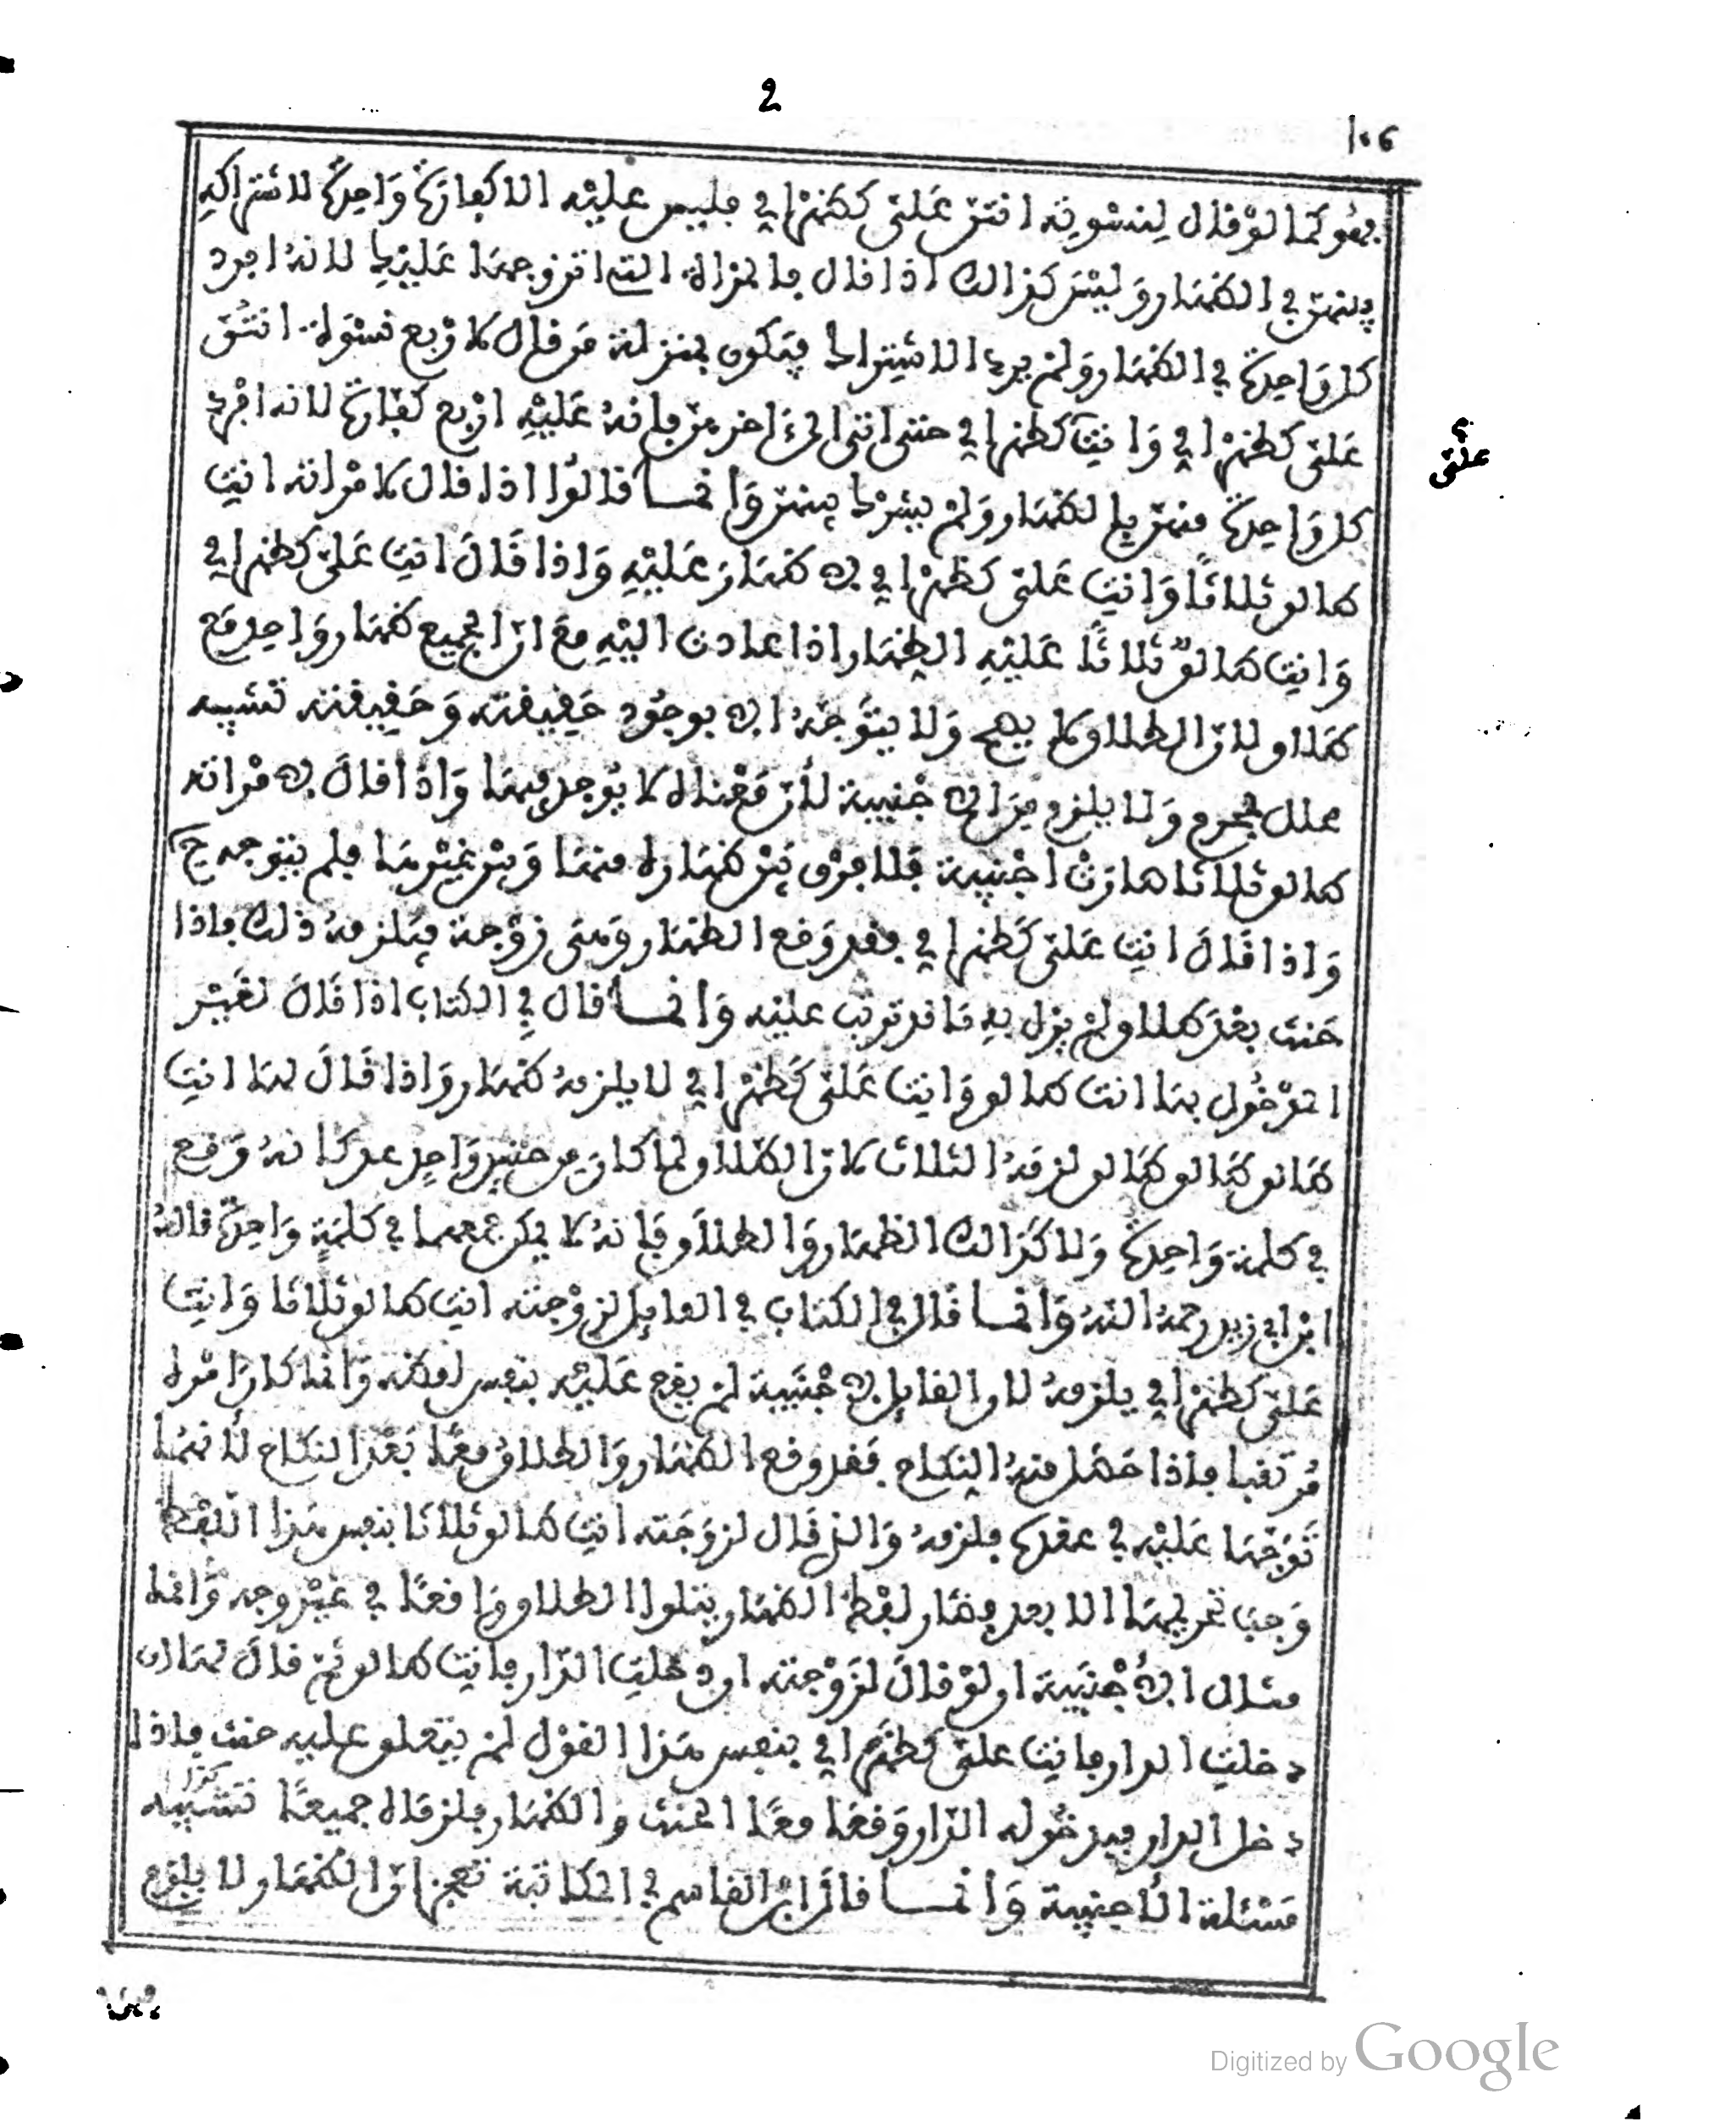 2
106
فهو كما لو قال لنسوته انتن علي كظهر امي فليس عليه الا كفارة واحدة لاشتراكه
بينهن في الظهار وليس كذالك اذا قال فالمراة التي اتزوجها عليكن لانه افرد
كل واحدة في الظهار ولم يرد الاشتراك فيكون بمنزلة من قال لاربع نسوة انت
علي كظهر امي وانت كظهر امي حتى اتى الى ءاخرهن فانه عليه اربع كفارة لانه افرد
كل واحدة منهن بالظهار ولم يشرك بينهن وانما قالوا اذا قال لامراته انت
طالو ثلاثا وانت علي كظهر امي لا ظهار عليه واذا قال انت علي كظهر امي
وانت طالو ثلاثا عليه الظهار اذا عادت اليه مع ان الجميع ظهار واحد مع
طلاو لان الطلاو لم يصح ولا يتوجه الا بوجود حقيقته وحقيقته تشبيه
محلل بمحرم ولا يلزم من الاجنبية لأن معناه لا يوجد فيها واذا قال لامراته
طالو ثلاثا صارت اجنبية فلا فرق بين ظهاره منها وبين غيرها فلم يتوجه ح
واذا قال انت علي كظهر امي فقد وقع الظهار وهي زوجة فيلزمه ذلك فاذا
حنث بعد طلاو لم يزل به ما قد ترتب عليه وانما قال في الكتاب اذا قال لغير
المدخول بها انت طالو وانت علي كظهر امي لا يلزمه ظهار واذا قال لها انت
طالو طالو طالو لزمه الثلاث لان الطلاو لما كان من جنس واحد عد كانه وقع
في كلمة واحدة ولا كذالك الظهار والطلاو فانه لا يمكن جمعهما في كلمة واحدة قاله
ابن ابي زيد رحمه الله وانما قال في الكتاب في القايل لزوجته انت طالو ثلاثا وانت
علي كظهر امي يلزمه لان القايل لاجنبية لم يقع عليه بنفس لفظه وانما كان امره
مرتقبا فاذا حصل منه النكاح فقد وقع الظهار والطلاق معا بعد النكاح لأنهما
توجها عليه في عقدة فلزمه والذي قال لزوجته انت طالو ثلاثا بنفس هذا اللفظ
وجب تحريمها الا بعد فصار لفظ الظهار يتلوا الطلاو واقعا في غير وجه وانما
مثال الاجنبية ان لو قال لزوجته ان دخلت الدار فانت طالو ثم قال لها ان
دخلت الدار فانت علي كظهر امي بنفس هذا القول لم يتعلو عليه حنث فاذا
دخل الدار فبدخوله الدار وقعا معا الحنث والظهار فلزماه جميعا كذا تشبيه
مسئلة الأجنبية وانما قال ابن القاسم في المكاتبة تعجز ان الظهار لا يلزم
علي